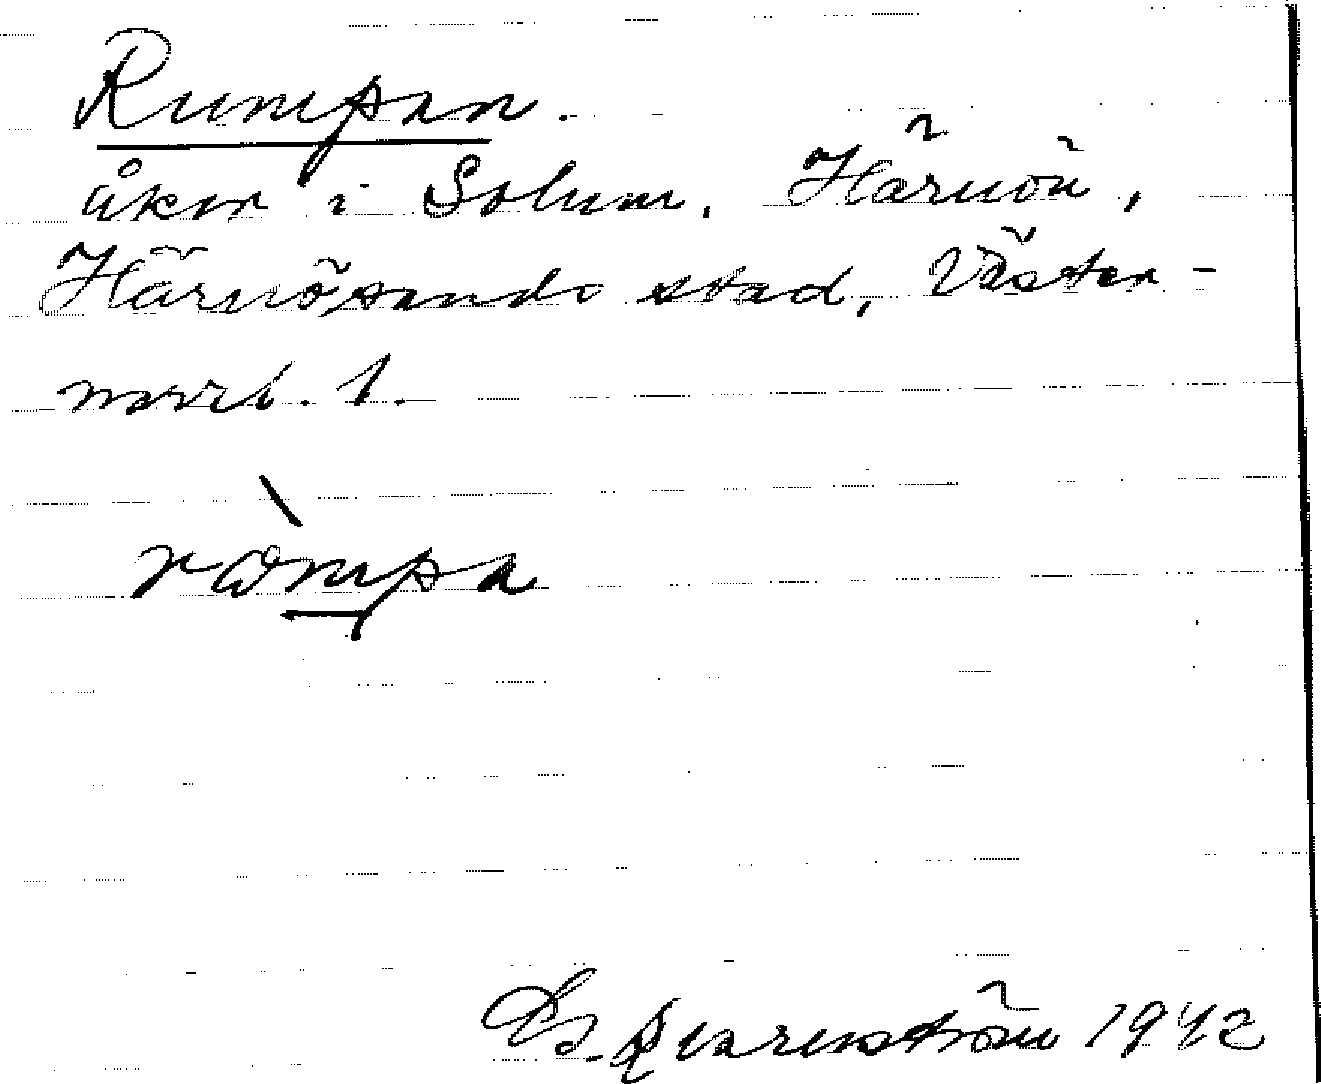 Rumpan.
åker i Solum, Härnön,
Härnösands stad, Väster-
norrl. l.
ròmpa
Qvarnström 1942